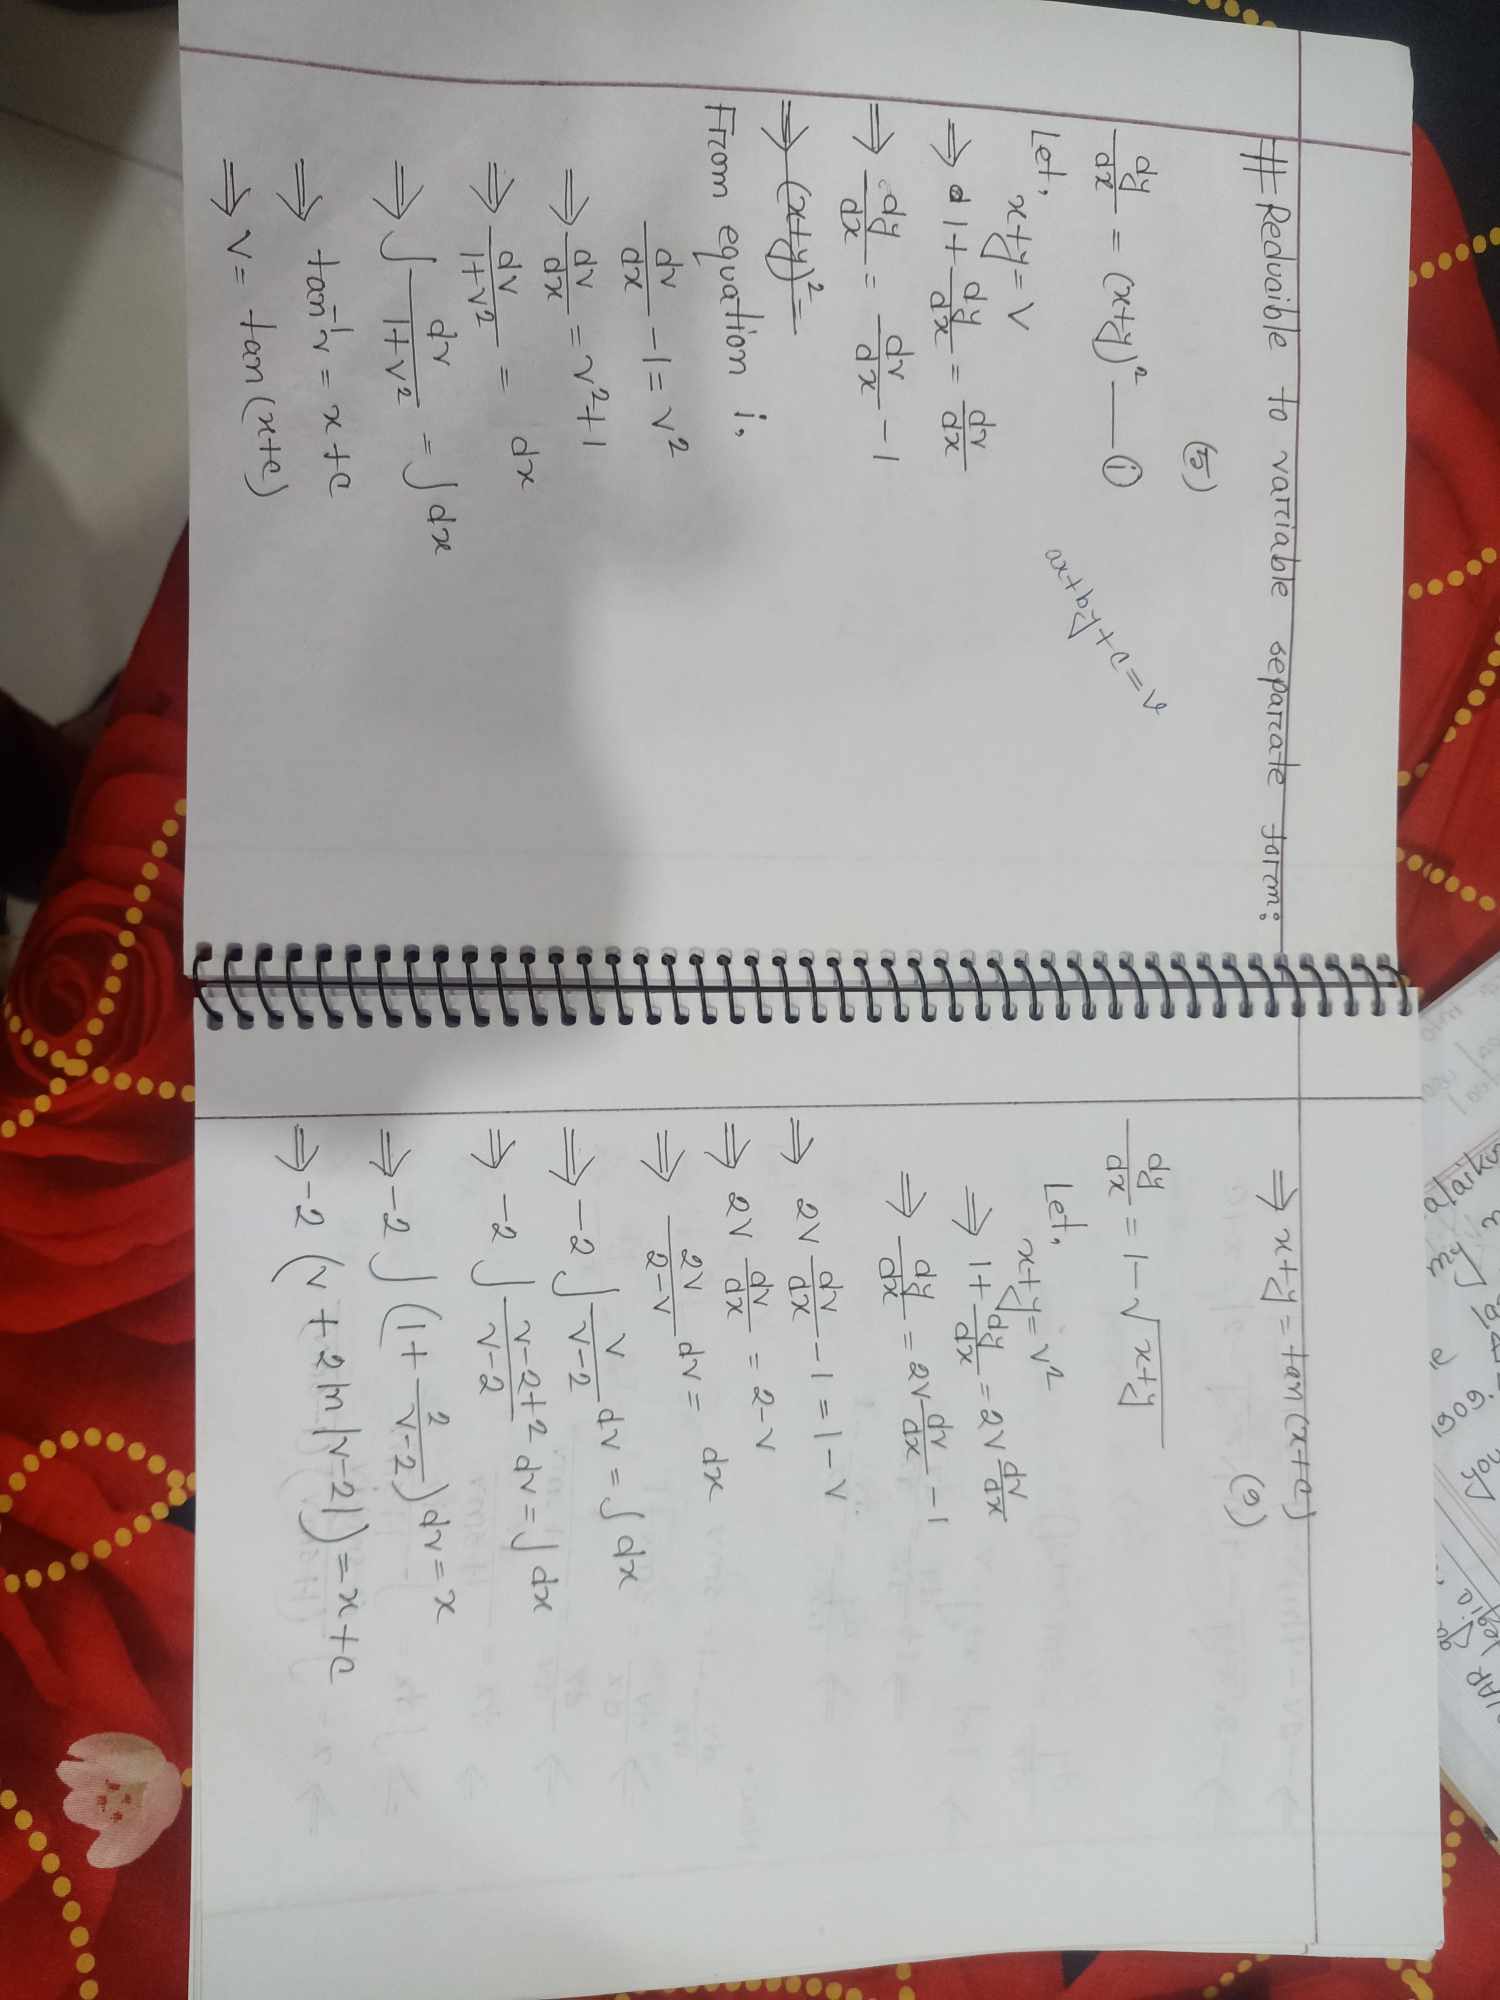 # Reducible to varciable separcate forcm:
(ক)
dy/dx = (x+y)² —— (i)
ax+by+c=v
Let,
x+y=v
⇒ 1+ dy/dx = dv/dx
⇒ dy/dx = dv/dx - 1
⇒ (x+y)² =
From equation i,
dv/dx - 1 = v²
⇒ dv/dx = v²+1
⇒ dv/1+v² = dx
⇒ ∫ dv/1+v² = ∫ dx
⇒ tan⁻¹v = x+c
⇒ v = tan(x+c)
⇒ x+y = tan(x+c)
dy/dx = 1-√x+y
Let,
x+y=v²
⇒ 1+ dy/dx = 2v dv/dx
⇒ dy/dx = 2v dv/dx - 1
⇒ 2v dv/dx - 1 = 1-v
⇒ 2v dv/dx = 2-v
⇒ 2v/2-v dv = dx
⇒ -2 ∫ v/v-2 dv = ∫ dx
⇒ -2 ∫ v-2+2/v-2 dv = ∫ dx
⇒ -2 ∫ (1+ 2/v-2) dv = x
⇒ -2 (v + 2 ln |v-2|) = x+c